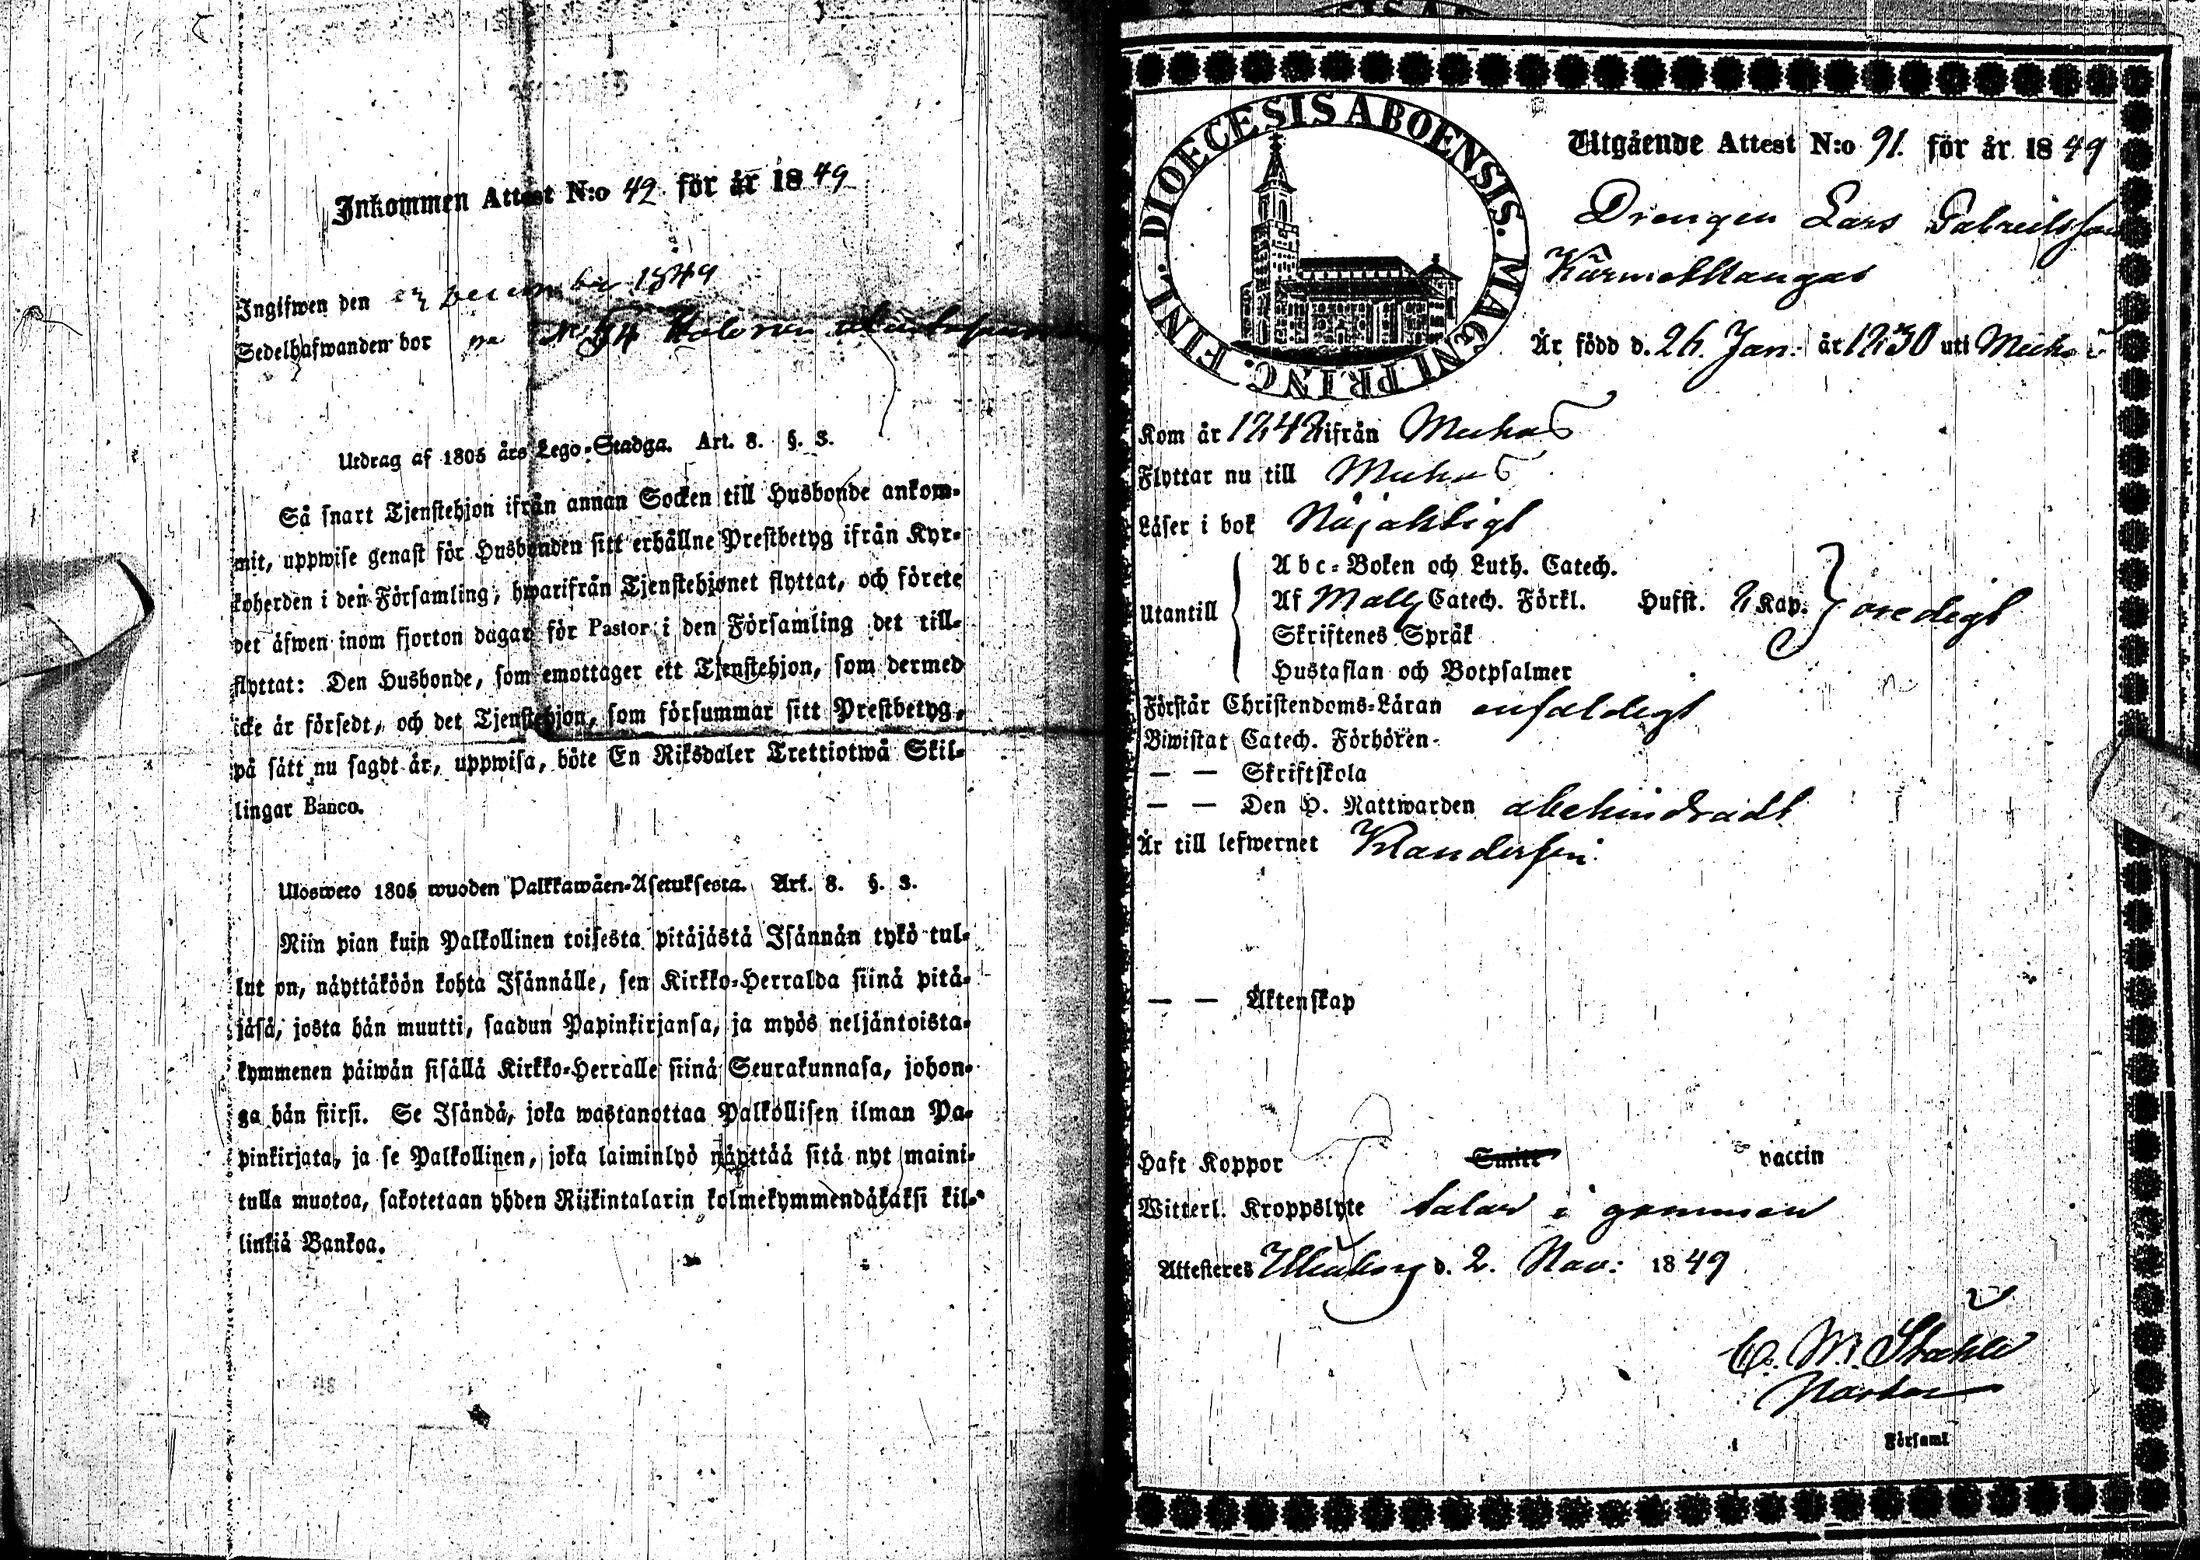 Inkommen Attest N:o 42 för år 1849
Ingifwen den 27 December 1849
Sedelhafwanden bor på N:o 54
Utdrag af 1805 års Lego-Stadga. Art. 8. §. 3.
Så snart Tjenstehjon ifrån annan Socken till Husbonde ankom-
mit, uppwise genast för Husbonden sitt erhållne Prestbetyg ifrån Kyr-
koherden i den Församling, hwarifrån Tjenstehjonet flyttat, och förete
det äfwen inom fjorton dagar för Pastor i den Församling det till-
flyttat: Den Husbonde, som emottager ett Tjenstehjon, som dermed
icke är försedt, och det Tjenstehjon, som försummar sitt Prestbetyg,
på sätt nu sagdt är, uppwisa, böte En Riksdaler Trettiotwå Skil-
lingar Banco.
Ulosweto 1805 wuoden Palkkawäen-Asetuksesta. Art. 8. §. 3.
Niin pian kuin Palkollinen toisesta pitäjästä Isännän tykö tul-
lut on, näyttäköön kohta Isännälle, sen Kirkko-Herralda siinä pitä-
jäsä, josta hän muutti, saadun Papinkirjansa, ja myös neljäntoista-
kymmenen päiwän sisällä Kirkko-Herralle siinä Seurakunnasa, johon-
ga hän siirsi. Se Isändä, joka wastanottaa Palkollisen ilman Pa-
pinkirjata, ja se Palkollinen, joka laiminlyö näyttää sitä nyt maini-
tulla muotoa, sakotetaan yhden Riikintalarin kolmekymmendäkaksi kil-
linkiä Bankoa.
DIOECESIS ABOENSIS. MAGNI PRINC. FINL.
Utgående Attest N:o 91. för år 1849
Drengen Lars Gabrielsson
Är född d. 26. Jan. år 1830 uti
Kom år 1842 ifrån
Flyttar nu till
Läser i bok Nöjaktigt
Abc-Boken och Luth. Catech.
Utantill Af Catech. Förkl. Hufst. 2 Kap.
Skriftenes Språk
Hustaflan och Botpsalmer
Förstår Christendoms-Läran enfaldigt
Biwistat Catech. Förhören
— — Skriftskola
— — Den H. Nattwarden obehindradt
Är till lefwernet Klanderfri
— — Äktenskap
Haft Koppor vaccin
Witterl. Kroppslyte talar i gommen
Attesteres d. 2. Nov: 1849
Pastor
Församl